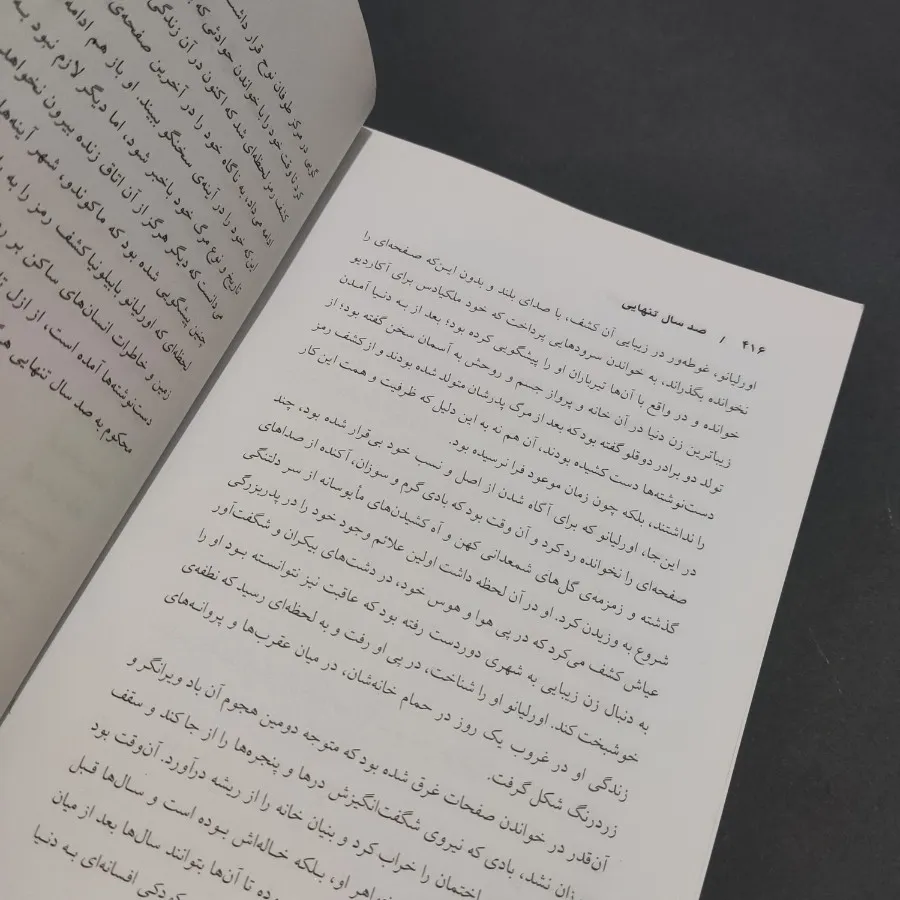 ۴۱۶ / صد سال تنهایی
اورلیانو، غوطه‌ور در زیبایی آن کشف، با صدای بلند و بدون این‌که صفحه‌ای را
نخوانده بگذراند، به خواندن سرودهایی پرداخت که خود ملکیادس برای آکاردیو
خوانده و در واقع با آن‌ها تیرباران او را پیشگویی کرده بود؛ بعد از به دنیا آمدن
زیباترین زن دنیا در آن خانه و پرواز جسم و روحش به آسمان سخن گفته بود؛ از
تولد دو برادر دوقلو گفته بود که بعد از مرگ پدرشان متولد شده بودند و از کشف رمز
دست‌نوشته‌ها دست کشیده بودند، آن هم نه به این دلیل که ظرفیت و همت این کار
را نداشتند، بلکه چون زمان موعود فرا نرسیده بود.
در این‌جا، اورلیانو که برای آگاه شدن از اصل و نسب خود بی‌قرار شده بود، چند
صفحه‌ای را نخوانده رد کرد و آن وقت بود که بادی گرم و سوزان، آکنده از صداهای
گذشته و زمزمه‌ی گل‌های شمعدانی کهن و آه کشیدن‌های مأیوسانه از سر دلتنگی
شروع به وزیدن کرد. او در آن لحظه داشت اولین علائم وجود خود را در پدربزرگی
عیاش کشف می‌کرد که در پی هوا و هوس خود، در دشت‌های بیکران و شگفت‌آور
به دنبال زن زیبایی به شهری دوردست رفته بود که عاقبت نیز نتوانسته بود او را
خوشبخت کند. اورلیانو او را شناخت، در پی او رفت و به لحظه‌ای رسید که نطفه‌ی
زندگی او در غروب یک روز در حمام خانه‌شان، در میان عقرب‌ها و پروانه‌های
زردرنگ شکل گرفت.
آن‌قدر در خواندن صفحات غرق شده بود که متوجه دومین هجوم آن باد ویرانگر و
زان نشد، بادی که نیروی شگفت‌انگیزش درها و پنجره‌ها را از جا کند و سقف
اختمان را خراب کرد و بنیان خانه را از ریشه درآورد. آن‌وقت بود
اهر او، بلکه خاله‌اش بوده است و سال‌ها قبل
ده تا آن‌ها بتوانند سال‌ها بعد از میان
کودکی افسانه‌ای به دنیا
گربی در مرکز طوفان نوح قرار داشت
کرد تا وقت خود را با خواندن حوادثی که
کشف رمز لحظه‌ای شد که اکنون در آن زندگی
ادامه می‌داد، به ناگاه خود را در آخرین صفحه‌ی
این‌که خود را در آینه‌ی سخنگو ببیند. او باز هم ادامه
تاریخ و نوع مرگ خود باخبر شود، اما دیگر لازم نبود به
می‌دانست که دیگر هرگز از آن اتاق زنده بیرون نخواهد
چنین پیشگویی شده بود که ماکوندو، شهر آینه‌ها
لحظه‌ای که اورلیانو بابیلونیا کشف رمز را به
زمین و خاطرات انسان‌های ساکن بر
دست‌نوشته‌ها آمده است، از ازل تا
محکوم به صد سال تنهایی